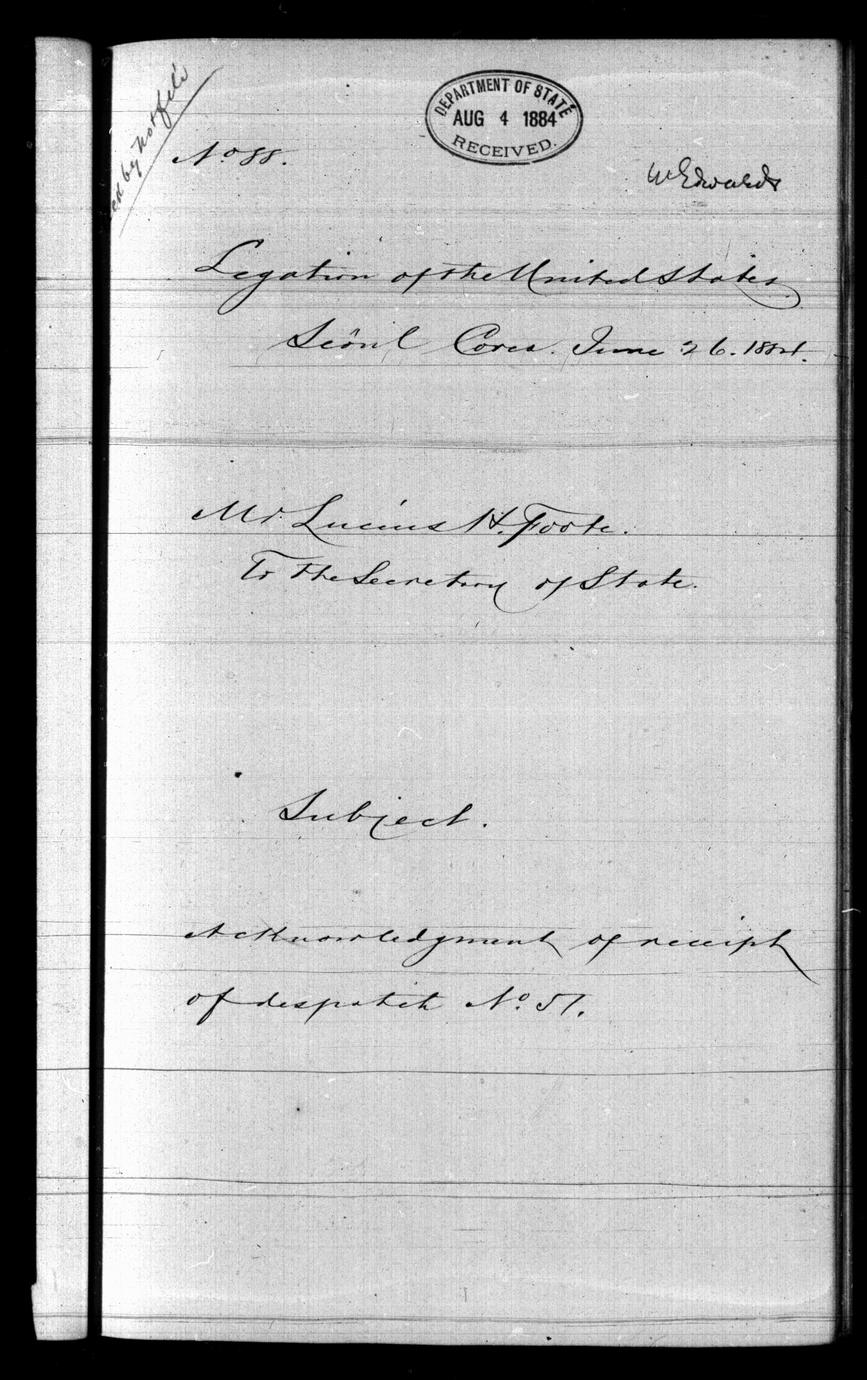 DEPARTMENT OF STATE
AUG 4 1884
RECEIVED.
No 88.
Legation of the United States.
Seôul Corea. June 26. 1884.
Mr. Lucius H. Foote.
To the Secretary of State.
Subject.
Acknowledgment of receipt
of despatch No. 51.